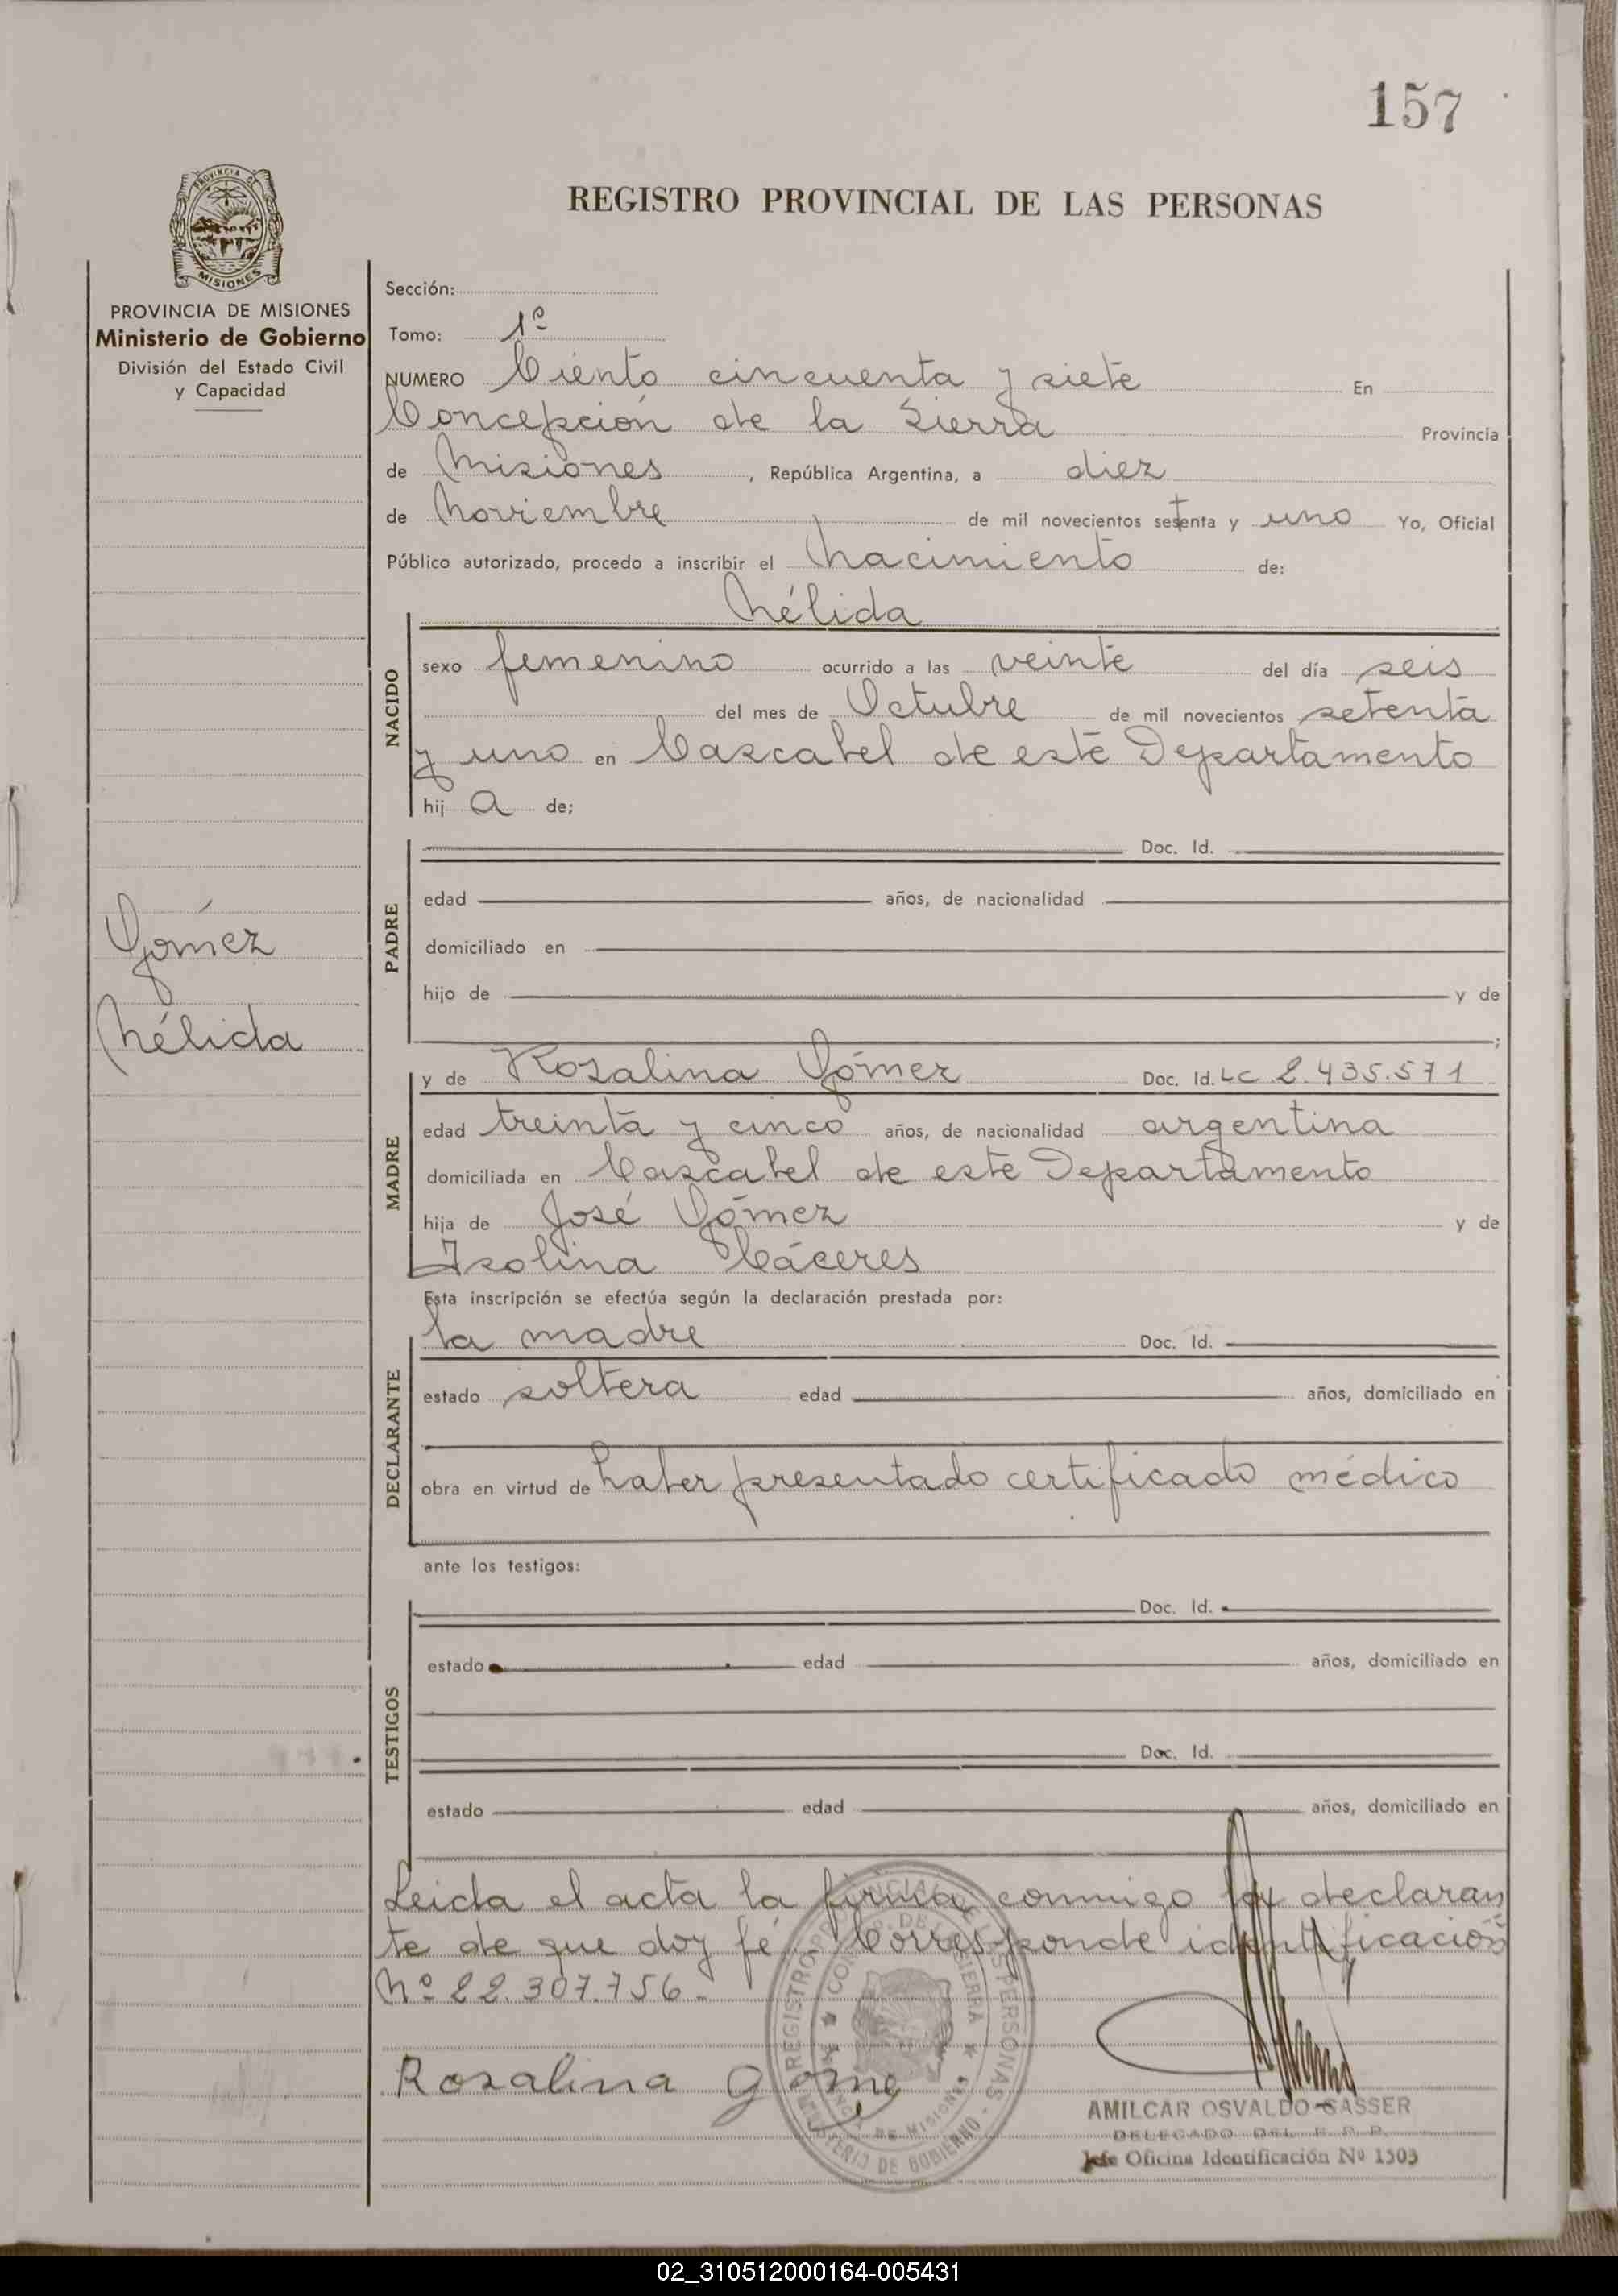 157
REGISTRO PROVINCIAL DE LAS PERSONAS
PROVINCIA DE MISIONES
PROVINCIA DE MISIONES
Ministerio de Gobierno
División del Estado Civil
y Capacidad
Gómez
Nélida
Sección:
Tomo: 1º
NUMERO Ciento cincuenta y siete En
Concepción de la Sierra Provincia
de Misiones, República Argentina, a diez
de Noviembre de mil novecientos setenta y uno Yo, Oficial
Público autorizado, procedo a inscribir el Nacimiento de:
Nélida
NACIDO
sexo femenino ocurrido a las veinte del día seis
del mes de Octubre de mil novecientos setenta
y uno en Cascabel de este Departamento
hija de;
PADRE
Doc. Id.
edad años, de nacionalidad
domiciliado en
hijo de y de
;
MADRE
y de Rosalina Gómez Doc. Id. LC 2.435.571
edad treinta y cinco años, de nacionalidad argentina
domiciliada en Cascabel de este Departamento
hija de José Gómez y de
Isolina Cáceres
Esta inscripción se efectúa según la declaración prestada por:
DECLARANTE
la madre Doc. Id.
estado soltera edad años, domiciliado en
obra en virtud de haber presentado certificado médico
ante los testigos:
TESTIGOS
Doc. Id.
estado edad años, domiciliado en
Doc. Id.
estado edad años, domiciliado en
Leida el acta la firma conmigo la declaran
te de que doy fé. Corresponde identificación
Nº 22.307.756.
Rosalina gome
REGISTRO PROVINCIAL DE LAS PERSONAS
MINISTERIO DE GOBIERNO
AMILCAR OSVALDO SASSER
DELEGADO DEL R. P. P.
Jefe Oficina Identificación Nº 1503
02_310512000164-005431